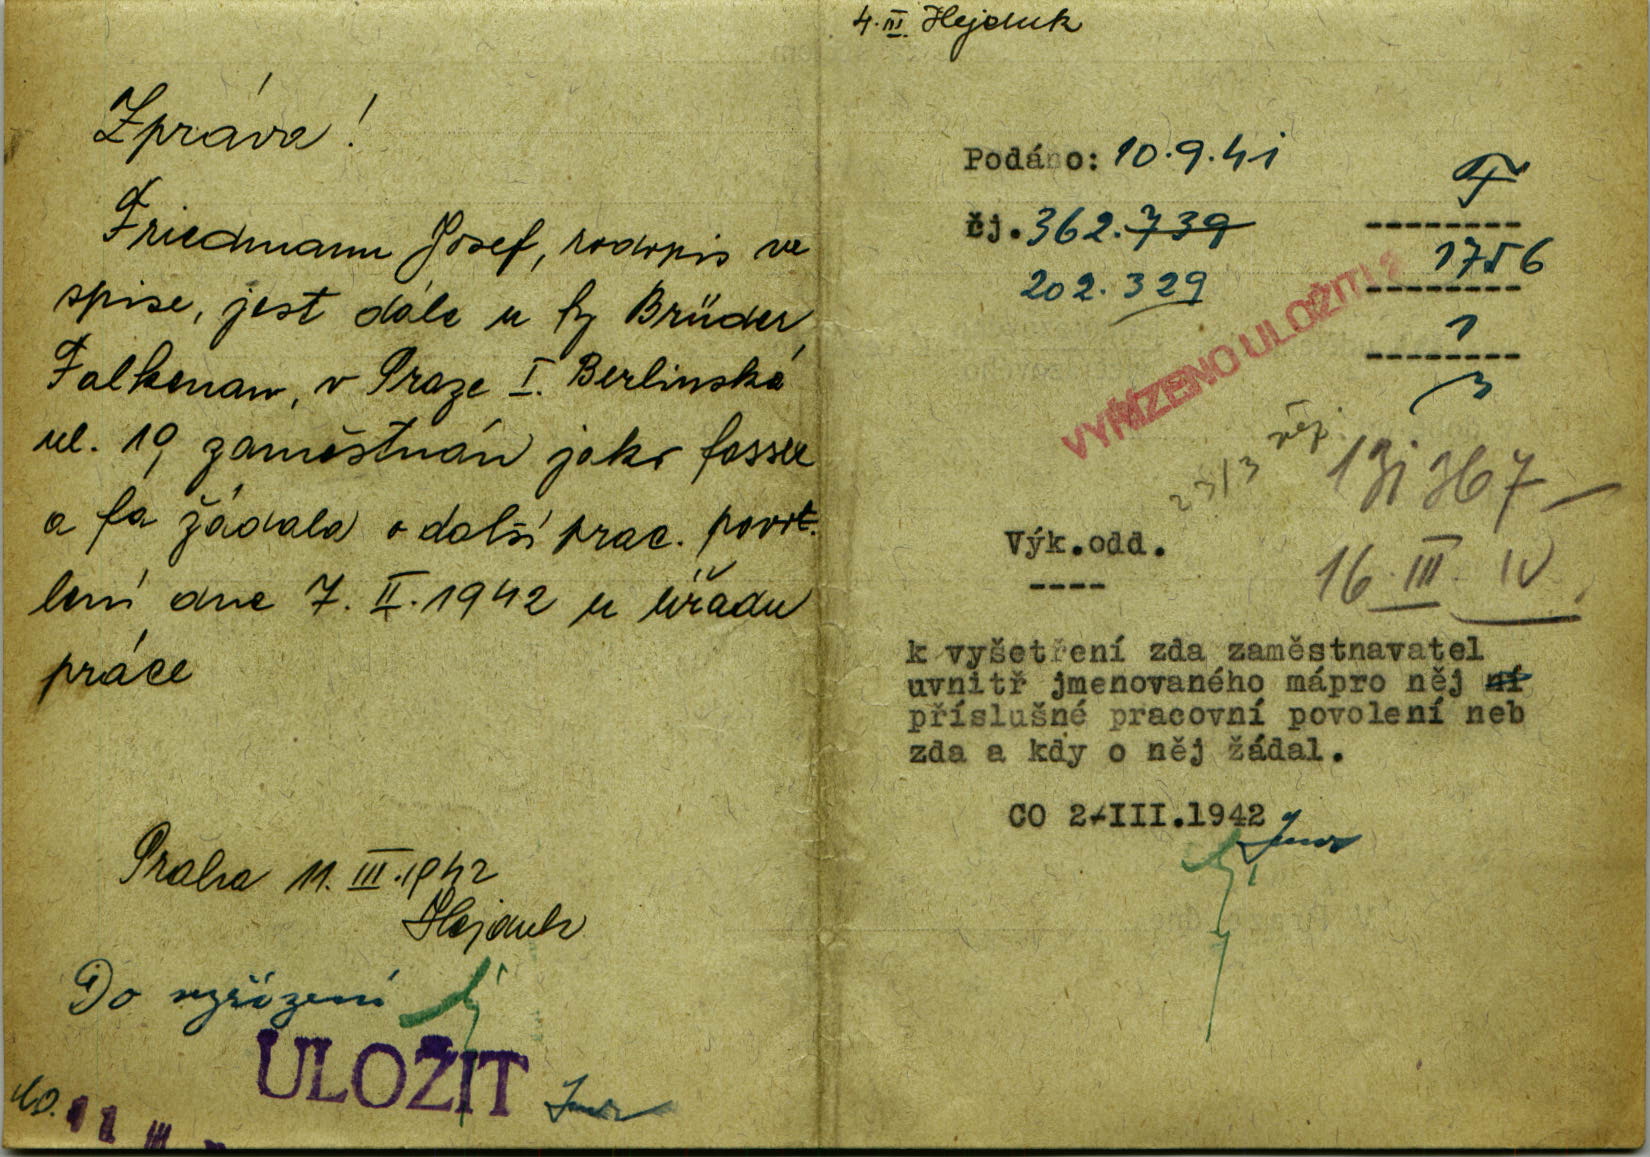 Zpráva!
Friedmann Josef, rodopis ve
spise, jest dále u fy Brüder
Falkenau, v Praze I. Berlinská
ul. 19 zaměstnán jako
a fa žádala o další prac. povo-
lení dne 7. II. 1942 u úřadu
práce
Praha 11. III. 1942
Hejduk
Do vyřízení
ULOŽIT
11 III
4. III. Hejduk
Podáno: 10.9.41
čj. 362.739
202.329
1756
1
3
VYŘÍZENO ULOŽITI
23/3
131367
16. III. IV
Výk.odd.
----
k vyšetření zda zaměstnavatel
uvnitř jmenovaného mápro něj ní
příslušné pracovní povolení neb
zda a kdy o něj žádal.
CO 2-III.1942